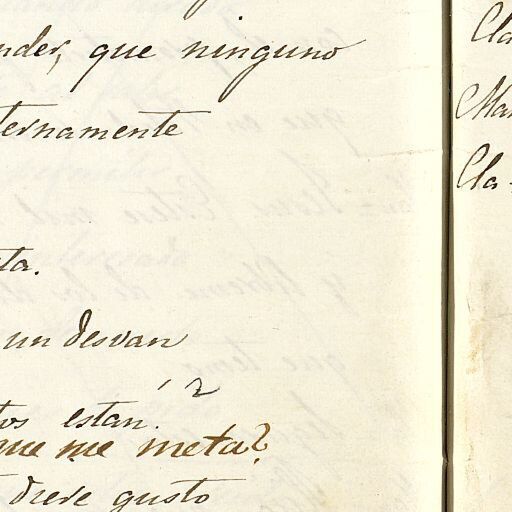 que ninguno
ternamente
ta.
un desvan
estan.
que me meta?
diere gusto
Cla
Mar
Cla